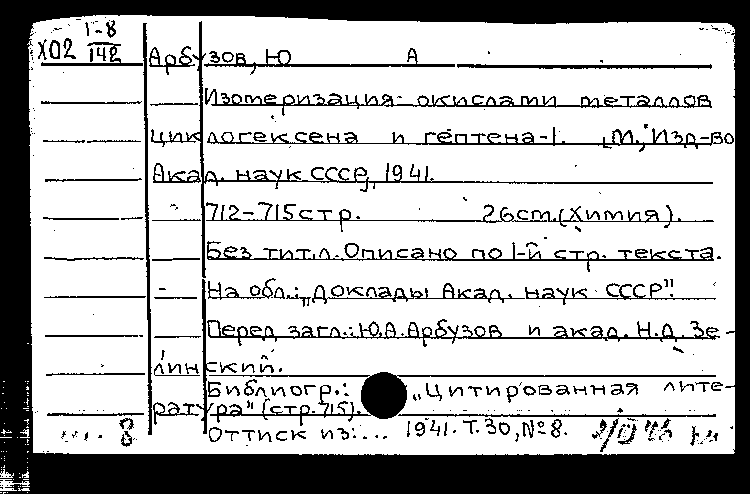 I-8
Х02 142
Арбузов, Ю А
Изомеризация окислами металлов
циклогексена и гептена-I. [М., Изд-во
Акад. наук СССР], 1941.
712-715 стр. 26 см. (Химия).
Без тит. л. Описано по I-й стр. текста.
На обл.: „Доклады Акад. наук СССР".
Перед загл.: Ю.А. Арбузов и акад. Н.Д. Зе-
линский.
Библиогр.: „Цитированная лите-
ратура" (стр. 715).
8 Оттиск из:... 1941. Т. 30, № 8.